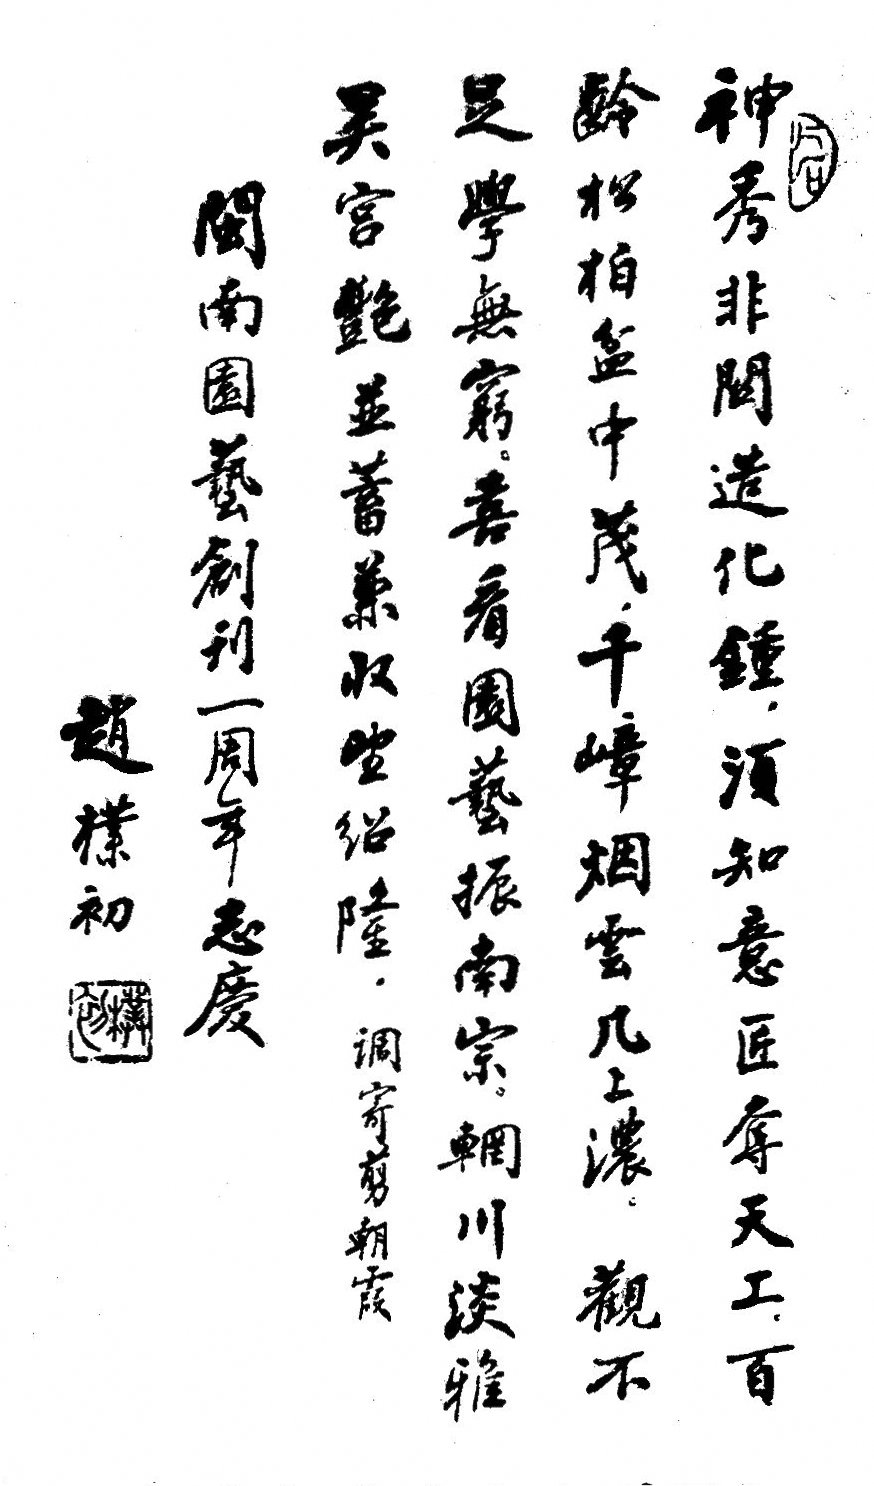 神秀非關造化鍾，須知意匠奪天工。百
齡松柏盆中茂，千嶂烟雲几上濃。 觀不
足學無窮。喜看園藝振南宗。輞川淡雅
吴宫艷並蓄兼收堂紹隆． 调寄剪朝霞
閩南園藝創刊一周年志慶
趙樸初